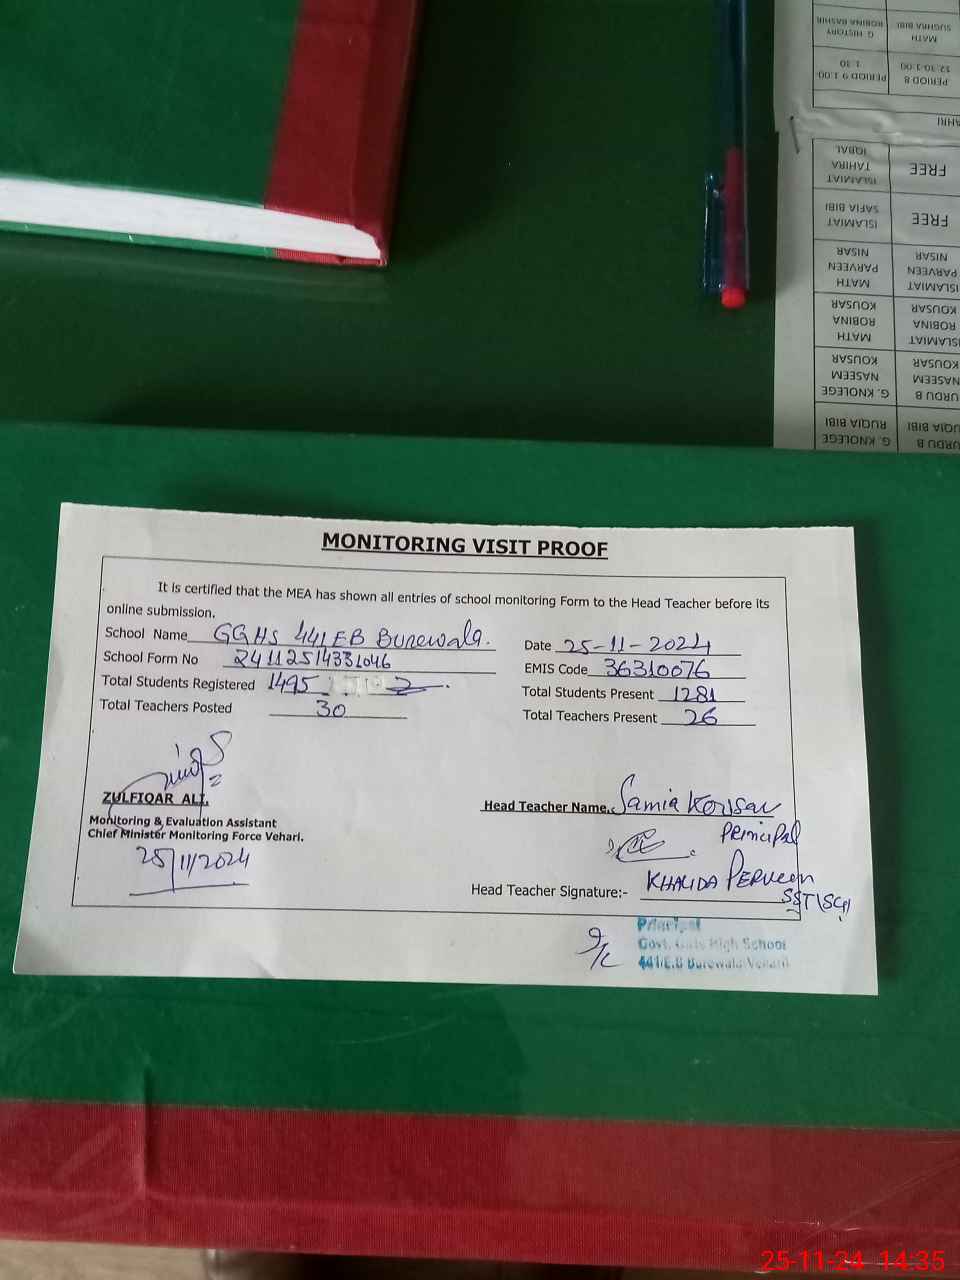 MATH
SUGHRA BIBI
G. HISTORY
ROBINA BASHIR
PERIOD 8
12:30-1:00
PERIOD 9 1:00-
1:30
FREE
ISLAMIAT
TAHIRA
IQBAL
FREE
ISLAMIAT
SAFIA BIBI
ISLAMIAT
PARVEEN
NISAR
MATH
PARVEEN
NISAR
ISLAMIAT
ROBINA
KOUSAR
MATH
ROBINA
KOUSAR
URDU B
NASEEM
KOUSAR
G. KNOLEGE
NASEEM
KOUSAR
URDU B
RUQIA BIBI
G. KNOLEGE
RUQIA BIBI
MONITORING VISIT PROOF
It is certified that the MEA has shown all entries of school monitoring Form to the Head Teacher before its
online submission.
School Name GGHS 441 EB Burewala. Date 25-11-2024
School Form No 24112514331046 EMIS Code 36310076
Total Students Registered 1495 Total Students Present 1281
Total Teachers Posted 30 Total Teachers Present 26
ZULFIQAR ALI.
Monitoring & Evaluation Assistant
Chief Minister Monitoring Force Vehari.
25/11/2024
Head Teacher Name. Samia Kousar
Principal
Head Teacher Signature:- KHALIDA PERVEEN
SST\SCI
Principal
Govt. Girls High School
441/E.B Burewala Vehari
25-11-24 14:35